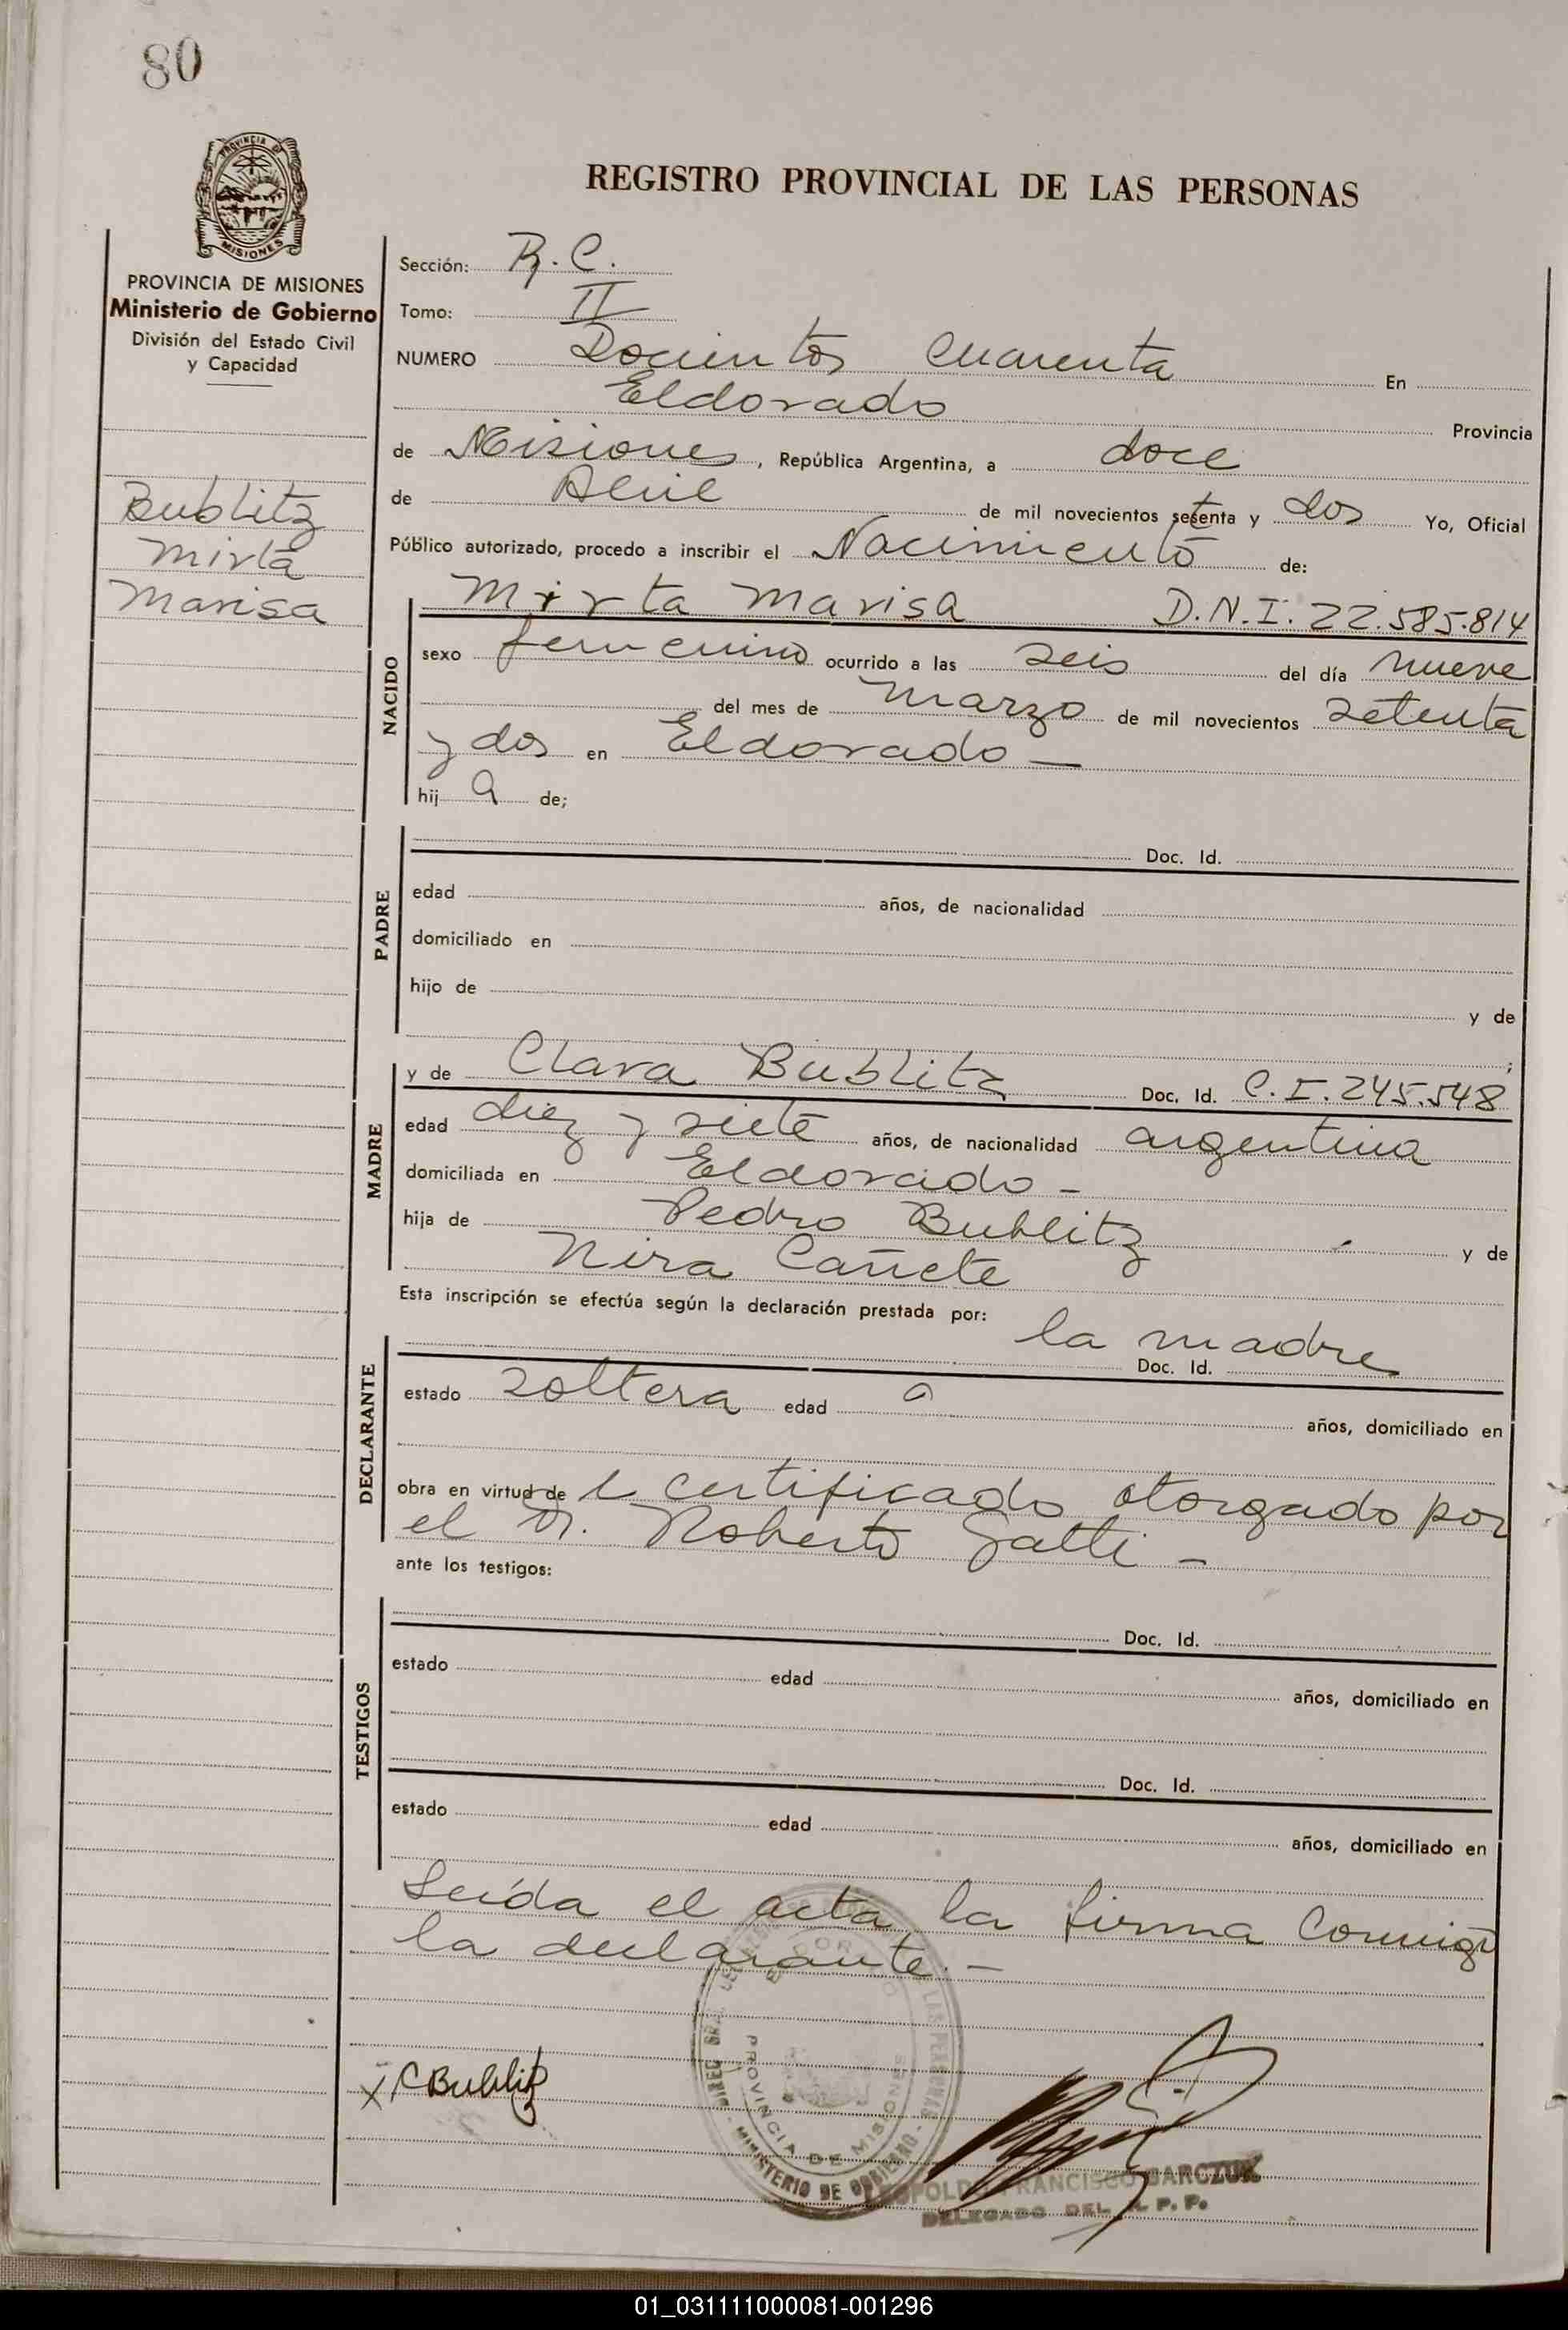 80
PROVINCIA DE
MISIONES
REGISTRO PROVINCIAL DE LAS PERSONAS
PROVINCIA DE MISIONES
Ministerio de Gobierno
División del Estado Civil
y Capacidad
Bublitz
Mirta
Marisa
Sección: R.C.
Tomo: II
NUMERO Docientos Cuarenta En
Eldorado Provincia
de Misiones, República Argentina, a doce
de Abril de mil novecientos setenta y dos Yo, Oficial
Público autorizado, procedo a inscribir el Nacimiento de:
NACIDO
Mirta Marisa D.N.I. 22.585.814
sexo femenino ocurrido a las seis del día nueve
del mes de marzo de mil novecientos setenta
y dos en Eldorado —
hij a de;
PADRE
Doc. Id.
edad años, de nacionalidad
domiciliado en
hijo de y de
;
MADRE
y de Clara Bublitz Doc. Id. C.I. 245.548
edad diez y siete años, de nacionalidad argentina
domiciliada en Eldorado -
hija de Pedro Bublitz y de
Nira Cañete
Esta inscripción se efectúa según la declaración prestada por: la madre
DECLARANTE
Doc. Id.
estado soltera edad años, domiciliado en
obra en virtud de l certificado otorgado por
el Dr. Roberto Gatti -
ante los testigos:
TESTIGOS
Doc. Id.
estado edad años, domiciliado en
Doc. Id.
estado edad años, domiciliado en
Leída el acta la firma Conmigo
la declarante. -
x C Bublitz
PROVINCIA DE MISIONES
MINISTERIO DE GOBIERNO
LEOPOLDO FRANCISCO GARCZUK
DELEGADO DEL R. P. P.
01_031111000081-001296